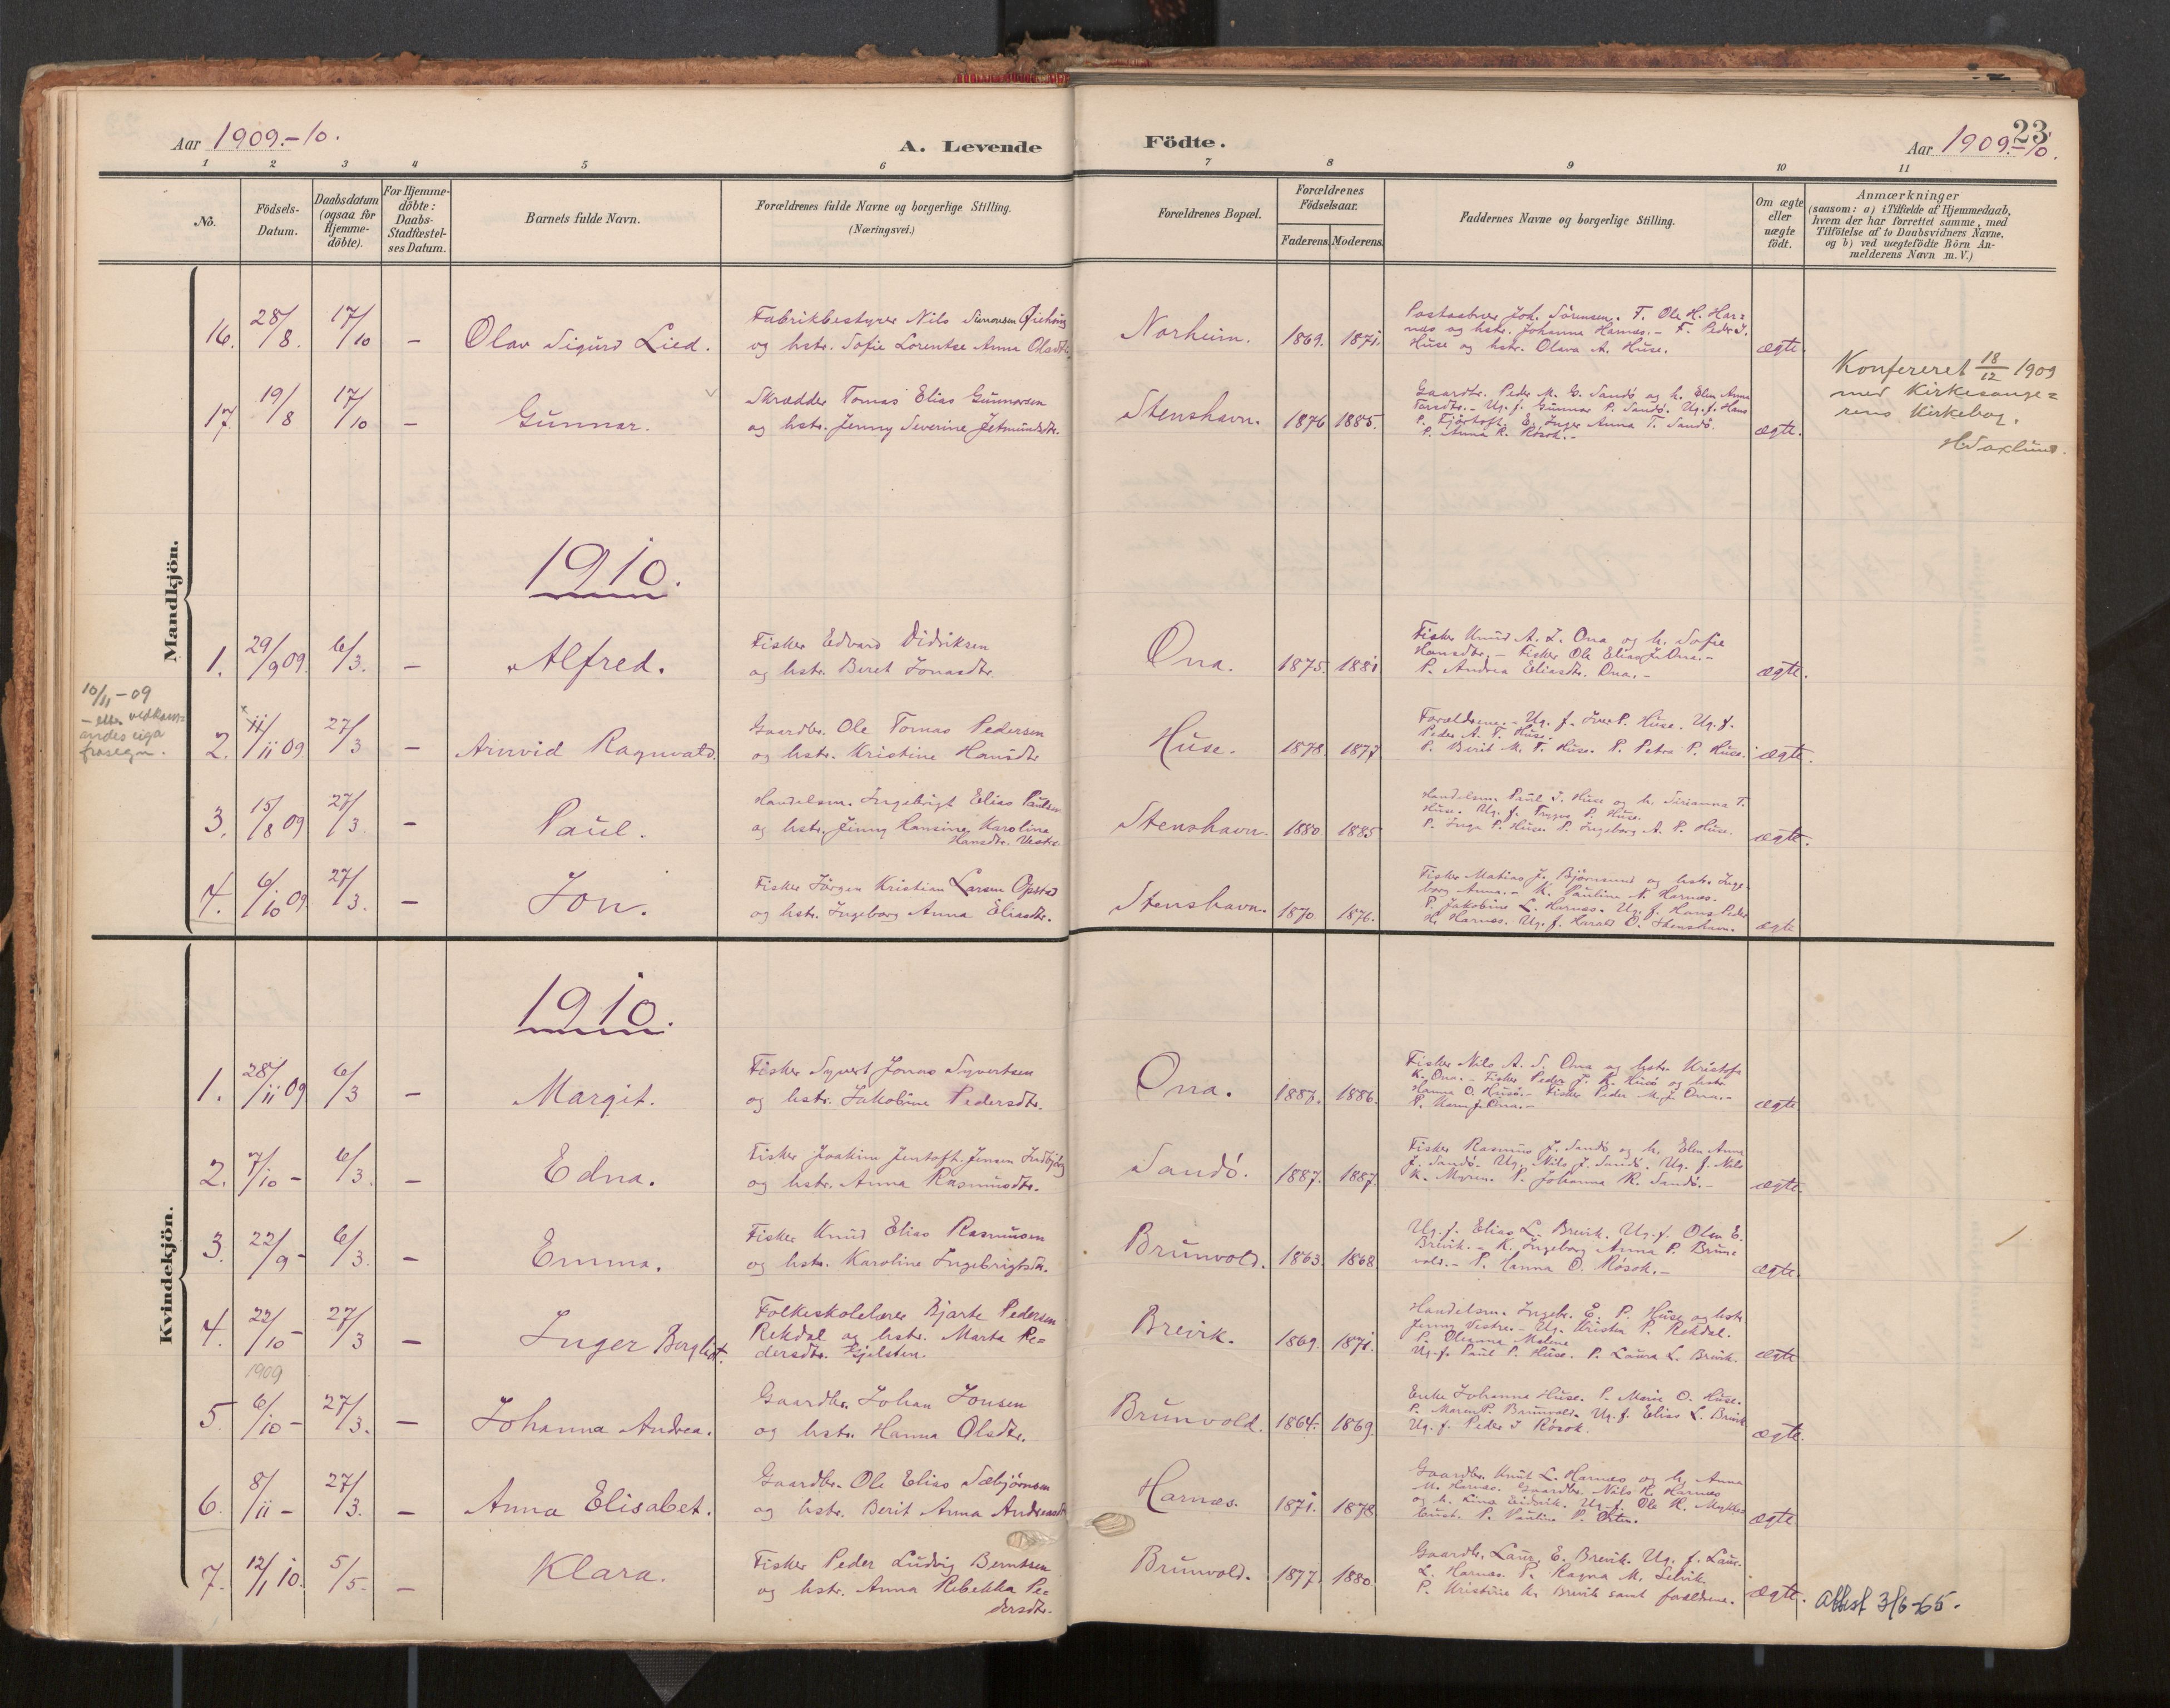 23
Aar 1909.-10.
A. Levende
Födte.
Aar 1909.-10.
1 2 3 4 5 6 7 8 9 10 11
No.
Födsels-
Datum.
Daabsdatum
(ogsaa for
Hjemme-
döbte).
For Hjemme-
döbte:
Daabs-
Stadfæstel-
ses Datum.
Barnets fulde Navn.
Forældrenes fulde Navne og borgerlige Stilling.
(Næringsvei.)
Forældrenes Bopæl.
Forældrenes
Födselsaar.
Faderens. Moderens.
Faddernes Navne og borgerlige Stilling.
Om ægte
eller
uægte
födt.
Anmærkninger
(saasom: a) i Tilfælde af Hjemmedaab,
hvem der har forrettet samme, med
Tilföielse af to Daabsvidners Navne,
og b) ved uægtefödte Börn An-
melderens Navn m. V.)
Mandkjön.
16. 28/8. 17/10 – Olav Sigurd Lied.
Fabrikbestyrer Nils Simonsen
og hstr. Sofie Lorentse Anna Olsdtr.
Norheim. 1869. 1871.
Postaabner Joh. Sörensen. F. Ole H. Har=
næs og hstr. Johanna Harnæs.- F. Peder I.
Huse og hstr. Olava A. Huse.
ægte.
17. 19/8 17/10 – Gunnar.
Skrædder Tomas Elias Gunnarsen
og hstr. Jenny Severine Jetmundsdtr.
Stenshavn. 1876 1885.
Gaardbr. Peder M. G. Sandö og h. Elen Anna
Tarsdtr.- Ug. f. Gunnar P. Sandö. Ug. f. Hans
P. Fjörtoft. E. Inger Anna T. Sandö.
P. Anna K. Rösok.-
ægte.
Konfereret 18/12 1909
med Kirkesange=
rens Kirkebog.
H. Saxlund.
1910.
1. 29/9 09. 6/3. – Alfred.
Fisker Edvard Didriksen
og hstr. Beret Jonasdtr.
Ona. 1875. 1881
Fisker Knud A. I. Ona og h. Sofie
Hansdtr.- Fisker Ole Elias J. Ona.-
P. Andrea Eliasdtr. Ona.-
ægte.
10/11-09
- etter vedkom=
andes eiga
frasegn.
2. 11/11 09 27/3 – Arnvid Ragnvald.
Gaardbr. Ole Tomas Pedersen
og hstr. Kristine Hansdtr
Huse. 1878. 1877
Forældrene.- Ug. f. Iver P. Huse. Ug. f.
Peder A. T. Huse.
P. Berit M. T. Huse. P. Petra P. Huse.
ægte.
3. 15/8 09 27/3. – Paul.
Handelsm. Ingebrigt Elias Paulsen
og hstr. Jinny Hansine Karolina
Hansdtr. Vestre.
Stenshavn. 1880. 1885
Handelsm. Paul I. Huse og h. Sirianna T.
Huse. Ug. f. Trygve P. Huse.
P. Inga P. Huse. P. Ingeborg A. P. Huse.
ægte.
4. 6/10 09. 27/3. – Jon.
Fisker Jörgen Kristian Larsen Opstad
og hstr. Ingeborg Anna Eliasdtr.
Stenshavn. 1870. 1876.
Fisker Matias J. Björnsund og hstr. Inge-
borg Anna.- K. Pauline A. Harnæs.
P. Jakobine L. Harnæs. Ug. f. Hans Peder
H. Harnæs. Ug. f. Harald O. Stenshavn.
ægte
Kvindekjön.
1910.
1. 28/11 09 6/3 – Margit.
Fisker Syvert Jonas Syvertsen
og hstr. Jakobine Pedersdtr.
Ona. 1887. 1886.
Fisker Nils A. S. Ona og hstr. Kristofa
K. Ona.- Fisker Peder J. K. Husö og hstr.
Hanna O. Husö.- Fisker Peder M. J. Ona.-
P. Karen J. Ona.-
ægte
2. 7/10 - 6/3. – Edna.
Fisker Joakim Jentoft Jensen
og hstr. Anna Rasmusdtr.
Sandö. 1887. 1887.
Fisker Rasmus J. Sandö og h. Elen Anna
J. Sandö. Ug. Nils J. Sandö. Ug. f. Nils
K. Myren. P. Johanna R. Sandö.-
ægte.
3. 22/9 - 6/3. – Emma.
Fisker Knud Elias Rasmusen
og hstr. Karoline Ingebrigtsdtr.
Brunvold. 1863. 1868
Ug. f. Elias L. Brevik. Ug. f. Olav E.
Brevik.- K. Ingeborg Anna P. Brun=
vold.- P. Hanna O. Rösok.-
ægte.
4. 22/10 - 27/3 – Inger Bergliot.
Folkeskolelærer Bjarte Pedersen
Rekdal og hstr. Marta Pe=
dersdtr. Gjelsten.
Brevik. 1869. 1871.
Handelsm. Ingebr. E. P. Huse og hstr
Jenny Vestre.- Ug. Kristen P. Rekdal.
P. Oleanna Malene
Ug. f. Paul P. Huse. P. Laura L. Brevik.
ægte
1909
5. 6/10 - 27/3. – Johanna Andrea.
Gaardbr. Johan Jonsen
og hstr. Hanna Olsdtr.
Brunvold. 1864. 1869.
Enke Johanna Huse. P. Marie O. Huse.
P. Maren P. Brunvold. Ug. f. Elias L. Brevik
Ug. f. Peder I Rösok.
ægte.
6. 8/11 - 27/3. – Anna Elisabet.
Gaardbr. Ole Elias Sæbjörnsen
og hstr. Berit Anna Andreasdtr
Harnæs. 1871. 1878
Gaardbr. Knut L. Harnæs og h. Anna
M. Harnæs. Gaardbr. Nils K. Harnæs
og h. Lina Eidsvik. Ug. f. Ole K. Mykle=
bust. P. Pauline P. Orten.
ægte
7. 12/1 10. 5/5. – Klara.
Fisker Peder Ludvig Berntsen
og hstr. Anna Rebekka Pe=
dersdtr.
Brunvold. 1877. 1880
Gaardbr. Laur. E. Brevik. Ug. f. Laur.
L. Harnæs. P. Ragna M. Leivik.
P. Kristine K. Brevik samt forældrene.
ægte.
Attest 3/6-65.